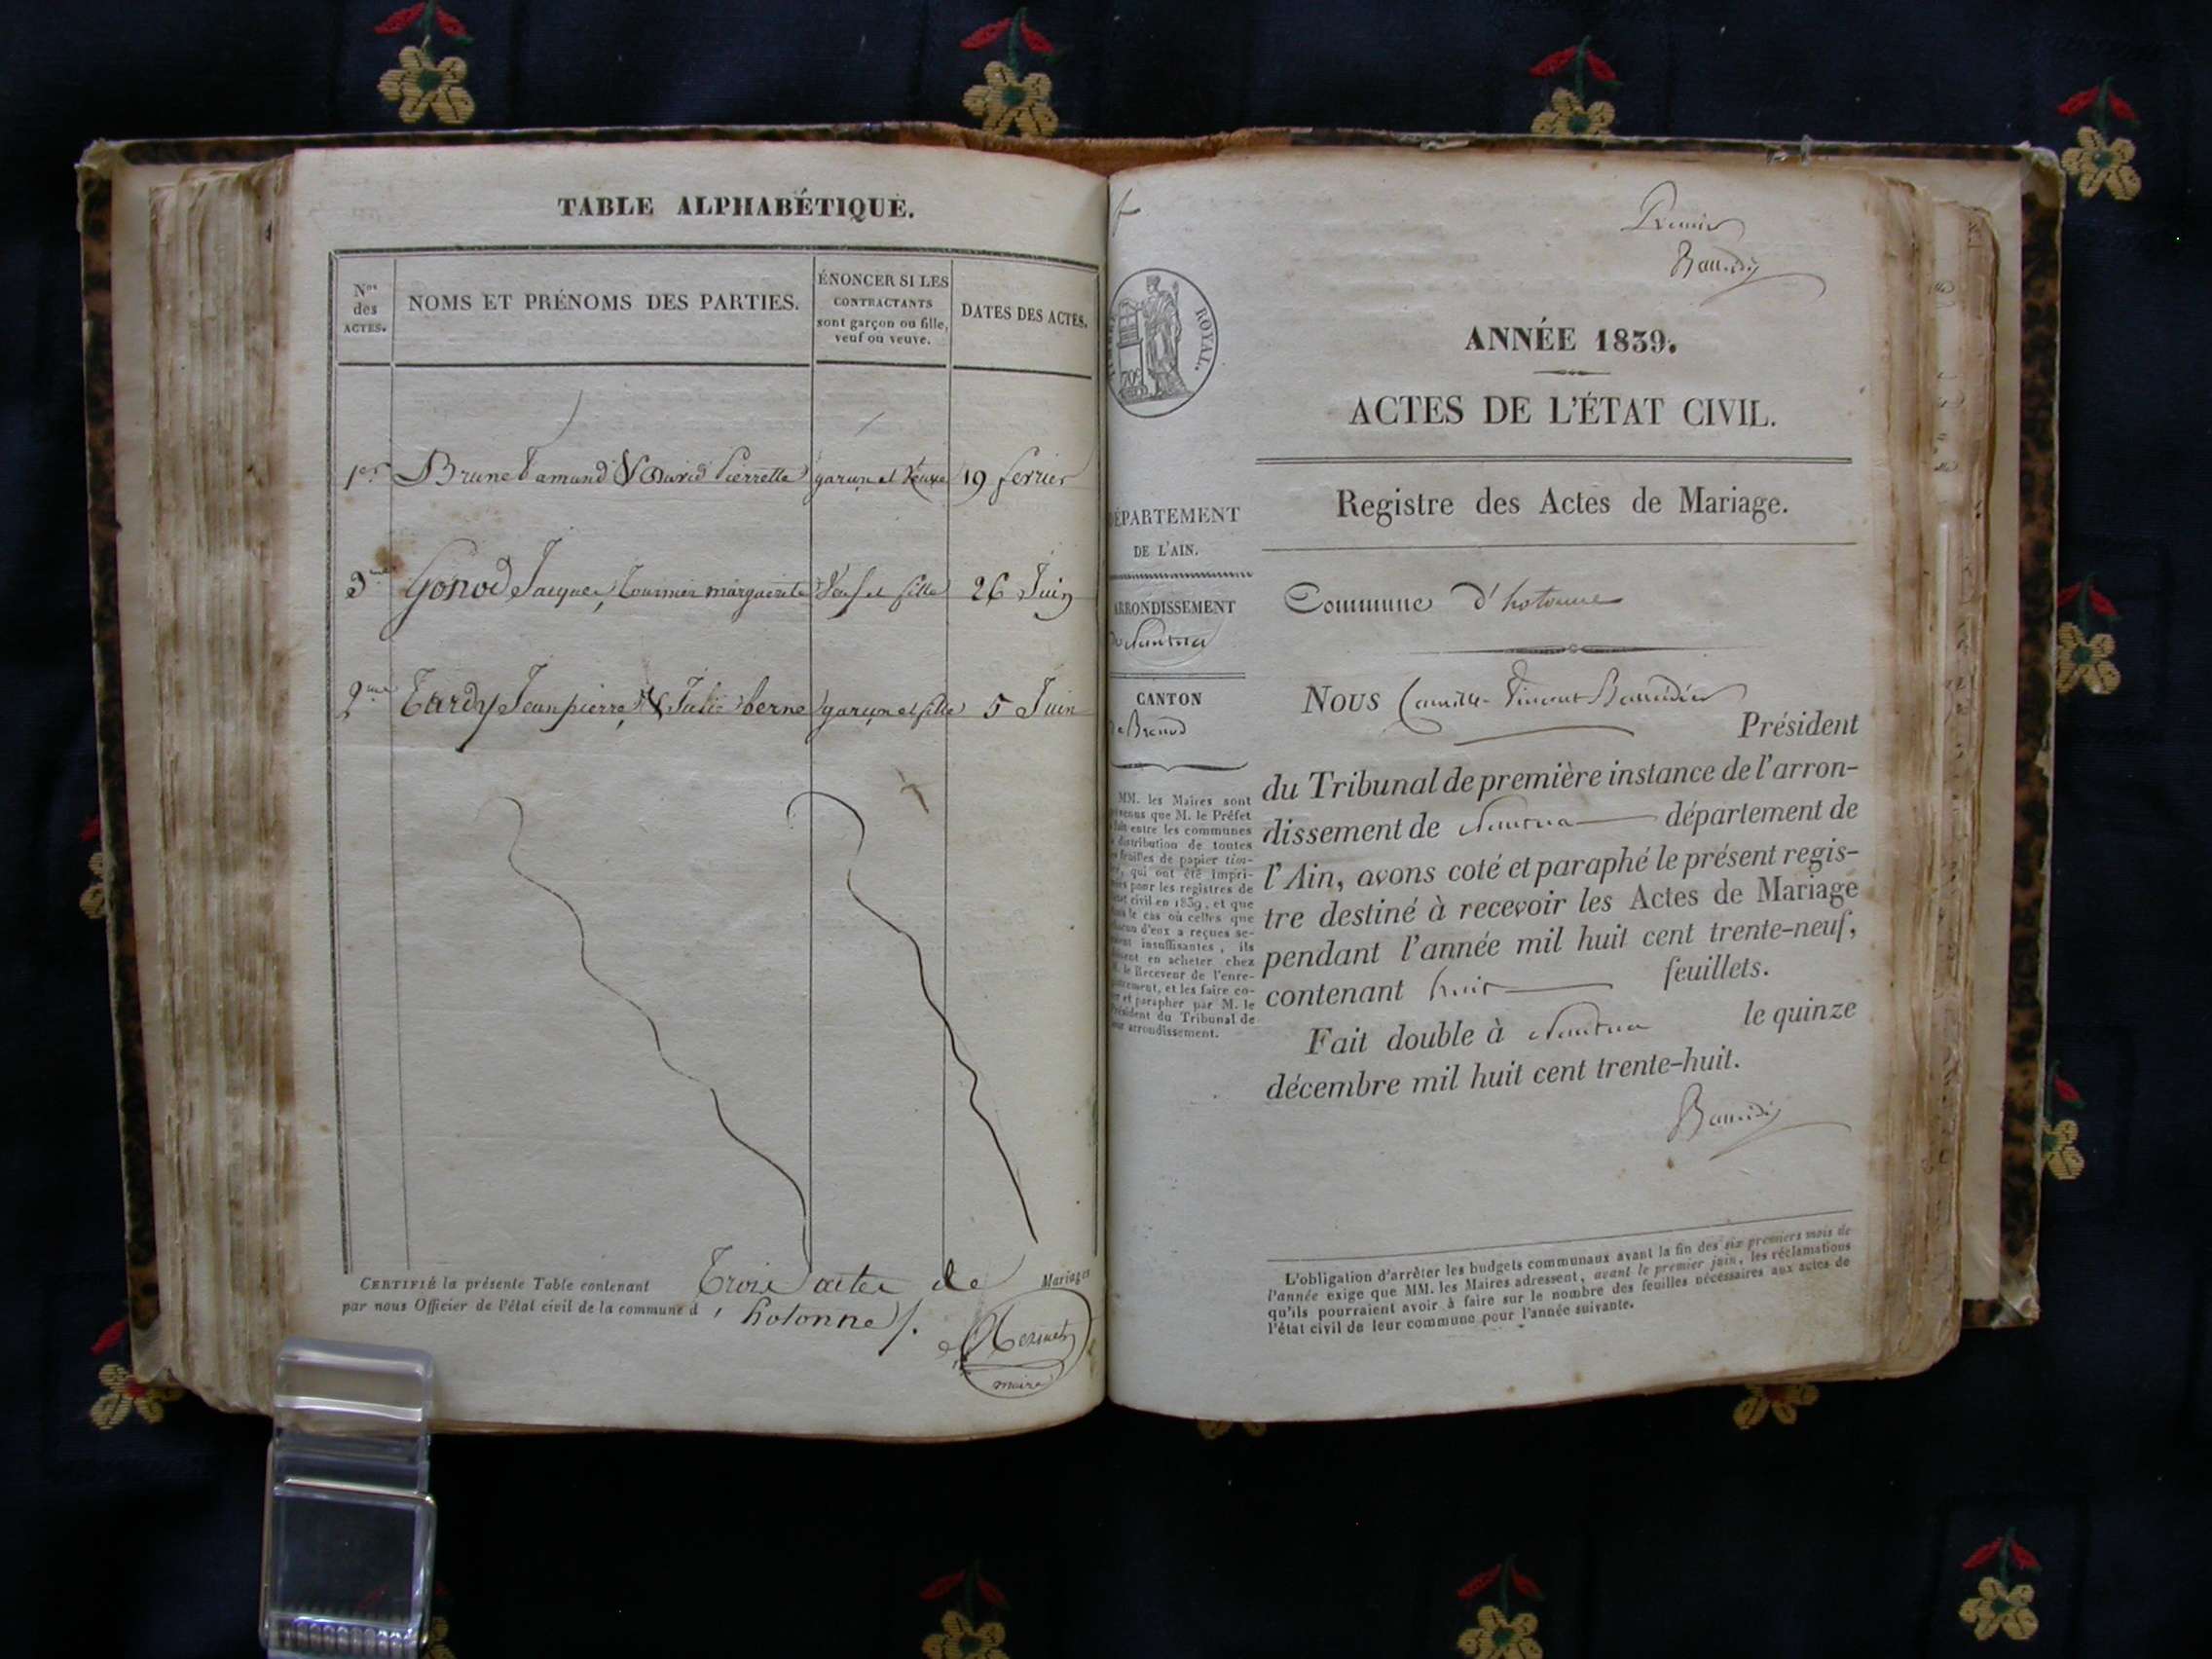 TABLE ALPHABÉTIQUE.
Nos des ACTES.
NOMS ET PRÉNOMS DES PARTIES.
ÉNONCER SI LES
CONTRACTANTS
sont garçon ou fille,
veuf ou veuve.
DATES DES ACTES.
1er Brunet amand & David Pierrette garçon et Veuve 19 fevrier
3me Gonod Jacques, tournier marguerite Veuf et fille 26 Juin
2me Tardy Jean pierre, & Julie berne garçon et fille 5 Juin
CERTIFIÉ la présente Table contenant Trois actes de Mariages
par nous Officier de l'état civil de la commune d' hotonne
maire
Premier
Baudier
ROYAL.
ANNÉE 1839.
ACTES DE L'ÉTAT CIVIL.
Registre des Actes de Mariage.
DÉPARTEMENT
DE L'AIN.
ARRONDISSEMENT
de Nantua
CANTON
de Brenod
MM. les Maires sont
prévenus que M. le Préfet
a fait entre les communes
la distribution de toutes
les feuilles de papier tim-
bré, qui ont été impri-
mées pour les registres de
l'état civil en 1839, et que
dans le cas où celles que
chacun d'eux a reçues se-
raient insuffisantes, ils
doivent en acheter chez
M. le Receveur de l'enre-
gistrement, et les faire co-
ter et parapher par M. le
Président du Tribunal de
leur arrondissement.
Commune d'hotonne
Nous Camille-Vincent
Président
du Tribunal de première instance de l'arron-
dissement de Nantua département de
l'Ain, avons coté et paraphé le présent regis-
tre destiné à recevoir les Actes de Mariage
pendant l'année mil huit cent trente-neuf,
contenant huit feuillets.
Fait double à Nantua le quinze
décembre mil huit cent trente-huit.
L'obligation d'arrêter les budgets communaux avant la fin des six premiers mois de
l'année exige que MM. les Maires adressent, avant le premier juin, les réclamations
qu'ils pourraient avoir à faire sur le nombre des feuilles nécessaires aux actes de
l'état civil de leur commune pour l'année suivante.